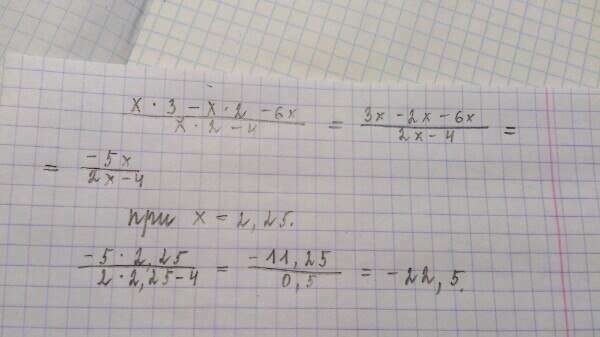 x · 3 - x · 2 - 6x / x · 2 - 4 = 3x - 2x - 6x / 2x - 4 =
= -5x / 2x - 4
при x = 2,25.
-5 · 2,25 / 2 · 2,25 - 4 = -11,25 / 0,5 = -22,5.